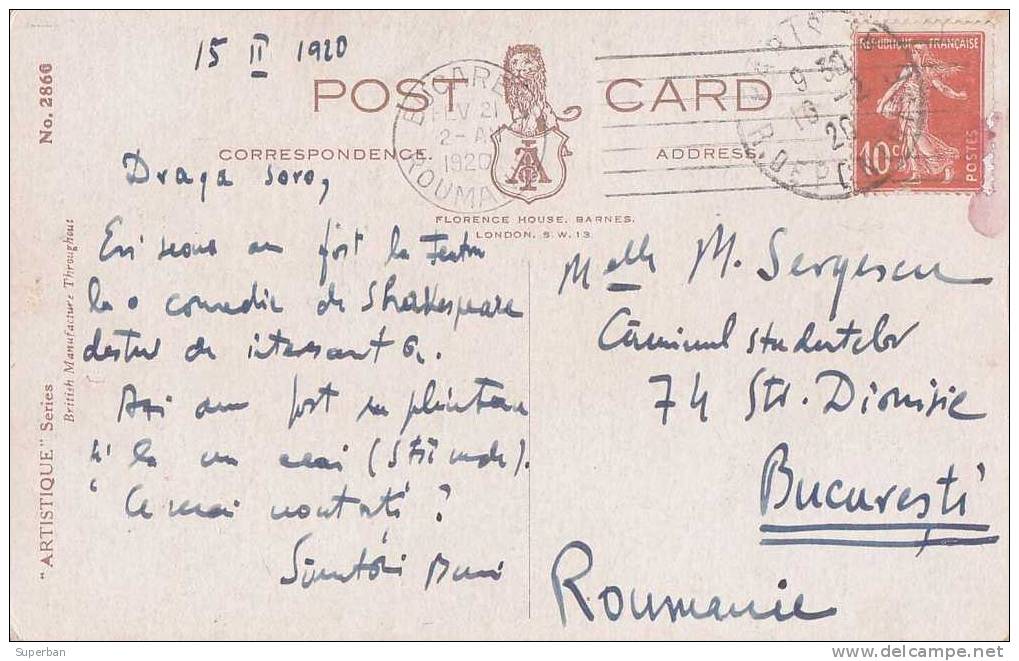 15 II 1920
POST CARD
CORRESPONDENCE.
ADDRESS.
No. 2866
"ARTISTIQUE" Series
British Manufacture Throughout
FLORENCE HOUSE, BARNES,
LONDON, S.W.13.
FEV 21
1920
ROUMA
PARIS
9 30
20
R. DEP
REPUBLIQUE FRANÇAISE
10c
POSTES
Draga soro,
Eri seara am fost la Teatru
la o comedie de Shakespeare
destul de interesantă.
Azi am fost
la un ceai (Stii unde).
Ce mai noutati?
Melle M. Sergescu
Căminul studentelor
74 Str. Dionisie
București
Roumanie
Superban
www.delcampe.net